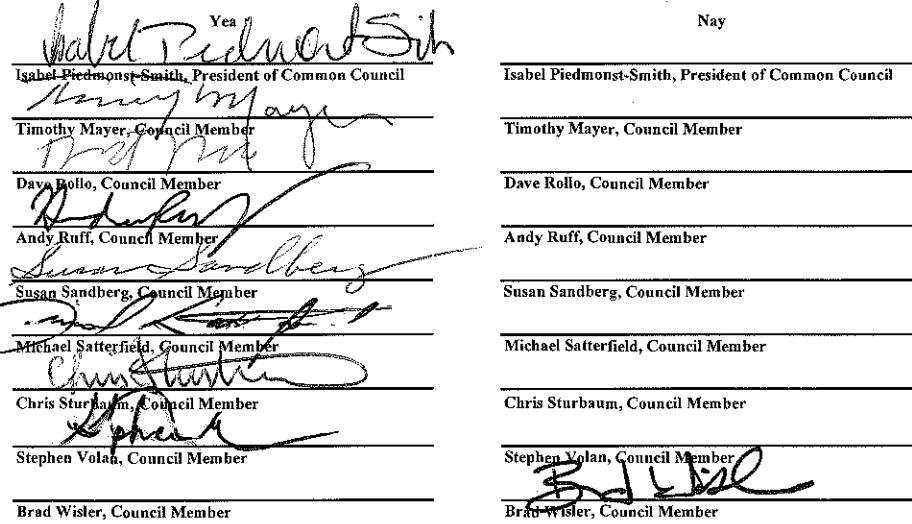 Yea
Isabel Piedmont-Smith
Isabel Piedmonst-Smith, President of Common Council
Timothy Mayer
Timothy Mayer, Council Member
Dave Rollo, Council Member
Andy Ruff, Council Member
Susan Sandberg
Susan Sandberg, Council Member
Michael Satterfield, Council Member
Chris Sturbaum
Chris Sturbaum, Council Member
Stephen Volan, Council Member
Brad Wisler, Council Member
Nay
Isabel Piedmonst-Smith, President of Common Council
Timothy Mayer, Council Member
Dave Rollo, Council Member
Andy Ruff, Council Member
Susan Sandberg, Council Member
Michael Satterfield, Council Member
Chris Sturbaum, Council Member
Stephen Volan, Council Member
Brad Wisler
Brad Wisler, Council Member